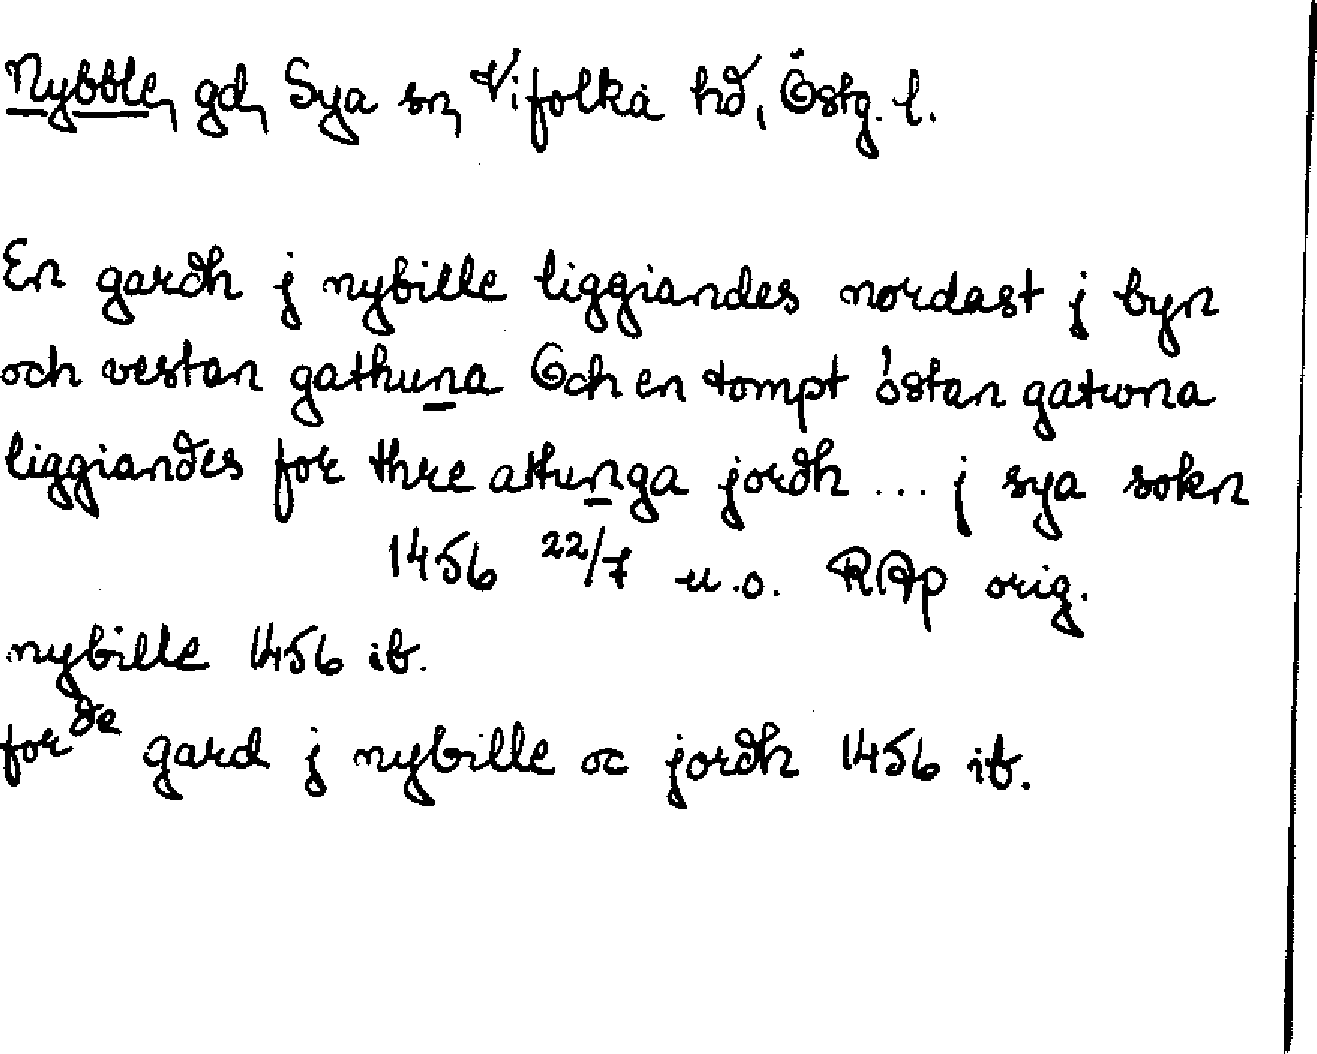 Nybble, gd, Sya sn, Vifolka hd, Östg. l.
En gardh j nybille liggiandes nordast j byn
och vestan gathuna Och en tompt östan gatwna
liggiandes for thre attunga jordh ... j sya sokn
1456 22/7 u.o. RAp orig.
nybille 1456 ib.
forde gard j nybille oc jordh 1456 ib.